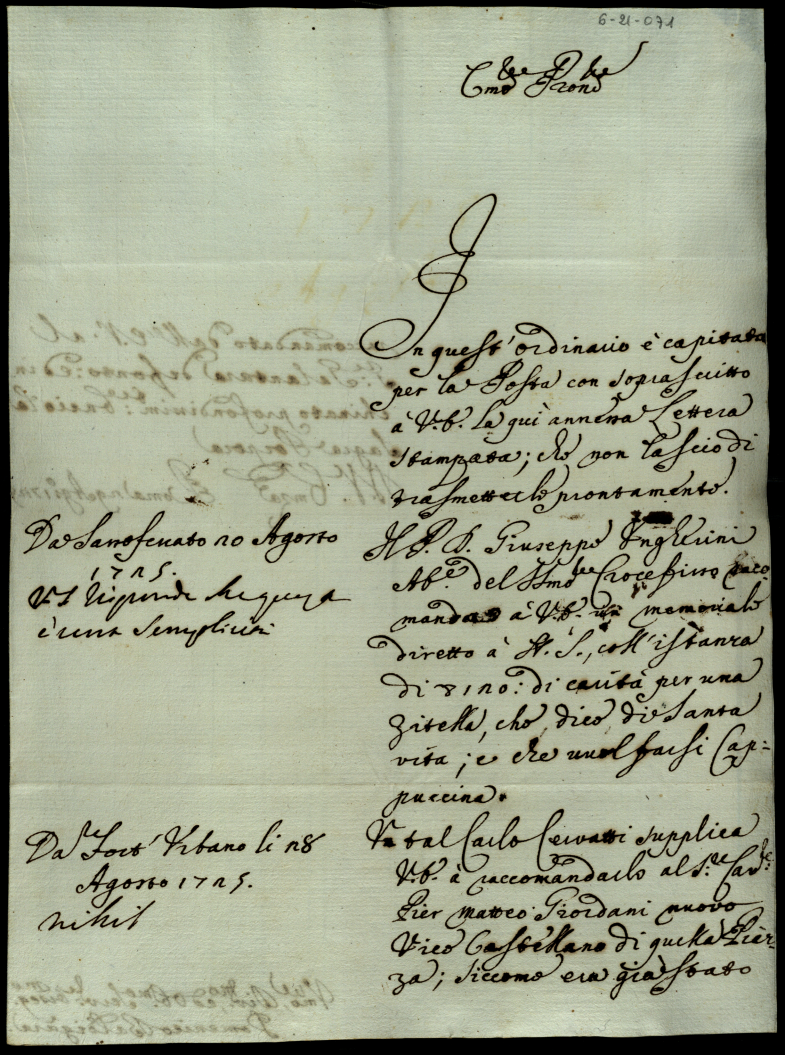 6-21-071
Em.mo P.rone
In quest' ordinario è capitata
per la Posta con soprascritto
à V.E. la quì annessa Lettera
stampata; che non lascio di
trasmetterle prontamente.
Da Sanseverato 20 Agosto
1725.
Il P. D. Giuseppe Ungherini
Ab.e del SS.mo Crocefisso racco
manda à V.E. un memoriale
diretto à N. S., coll' istanza
di 120: di carità per una
zitella, che dice di Santa
vita; e che vuol farsi Cap=
puccina.
Si risponde che questa
è una
Da Fort' Urbano li 28
Agosto 1725.
nihil
Un tal Carlo Cervatti supplica
V.E. à raccomandarlo al S.r Cav.re
Pier Matteo Giordani nuovo
Vice Castellano di quella Piaz
za; siccome era già stato